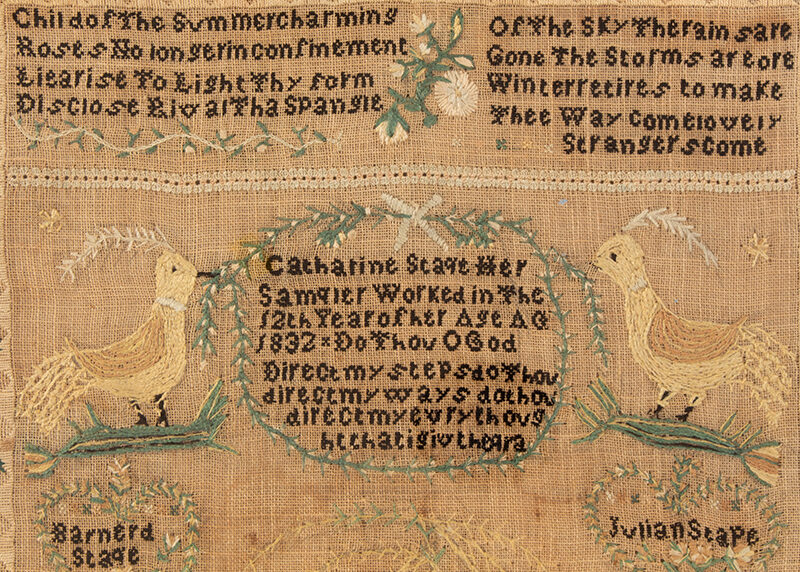 Child of The Summer charming
Roses No longer in confinement
Liearise To Light Thy form
Disclose Rival Tha Spangle
Of The Sky The rain s are
Gone The Storms are ore
Winter retires to make
Thee Way Come lovely
Strangers Come
Catharine Stage Her
Sampler Worked in The
12th Year of her Age AD
1832 × Do Thou O God
Direct my steps do Thou
direct my ways do thou
direct my evry thoug
ht that i giv the
Barnerd
Stage
Julian Stage